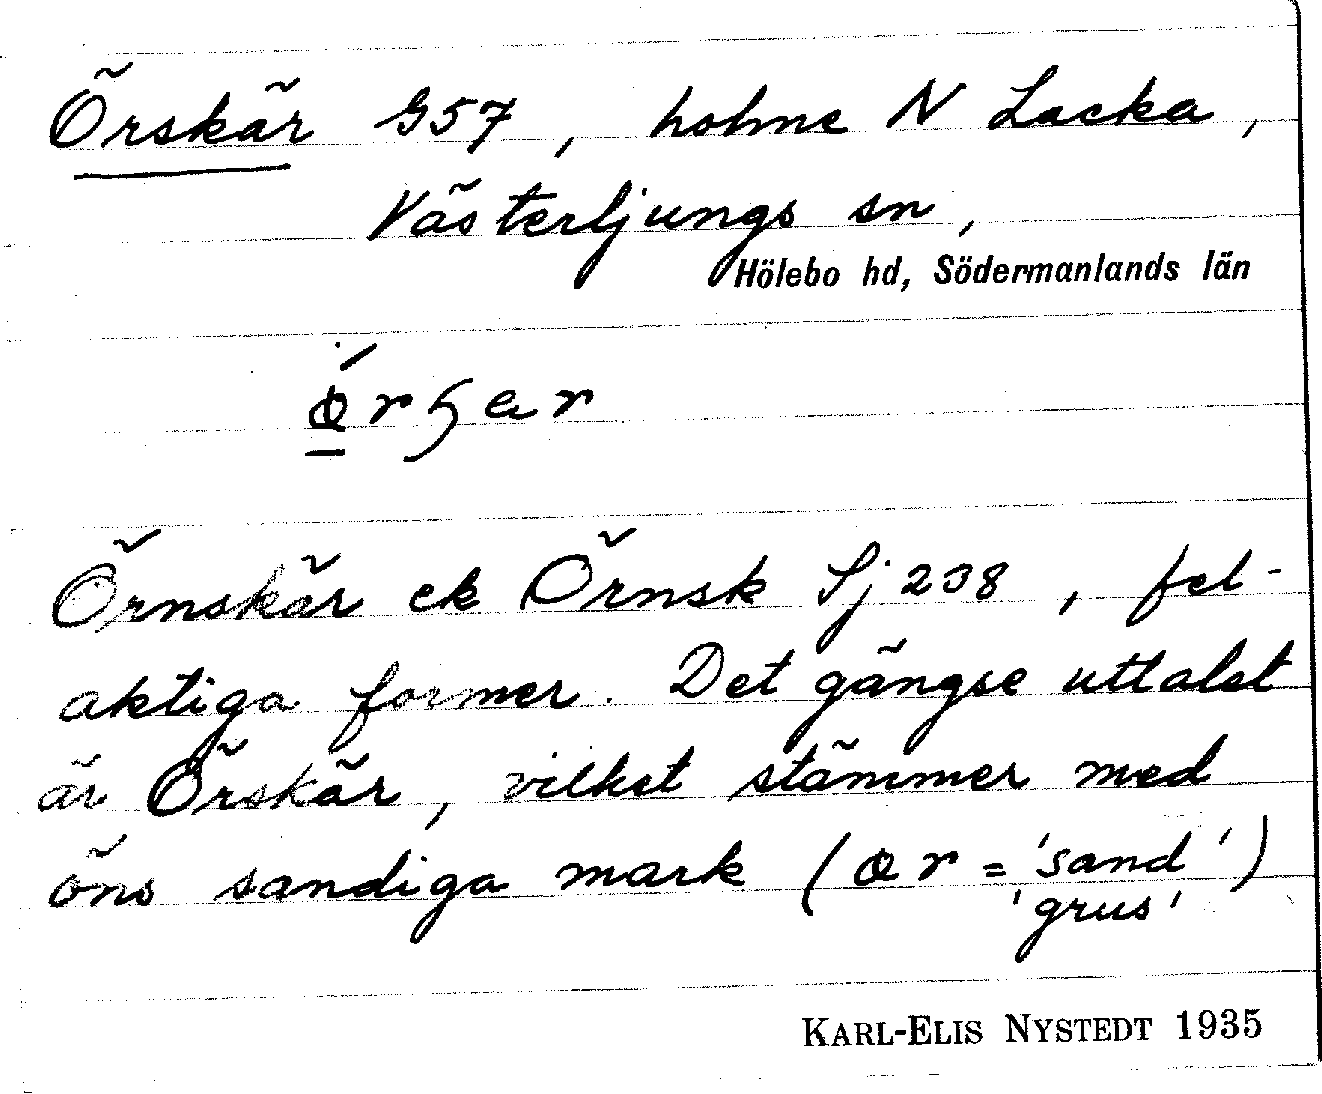 Örskär G57, holme N Lacka,
Västerljungs sn,
Hölebo hd, Södermanlands län
Örnskär ek Örnsk Sj 238, fel-
aktiga former. Det gängse uttalet
är Örskär, vilket stämmer med
öns sandiga mark (ør = 'sand')
'grus'
KARL-ELIS NYSTEDT 1935